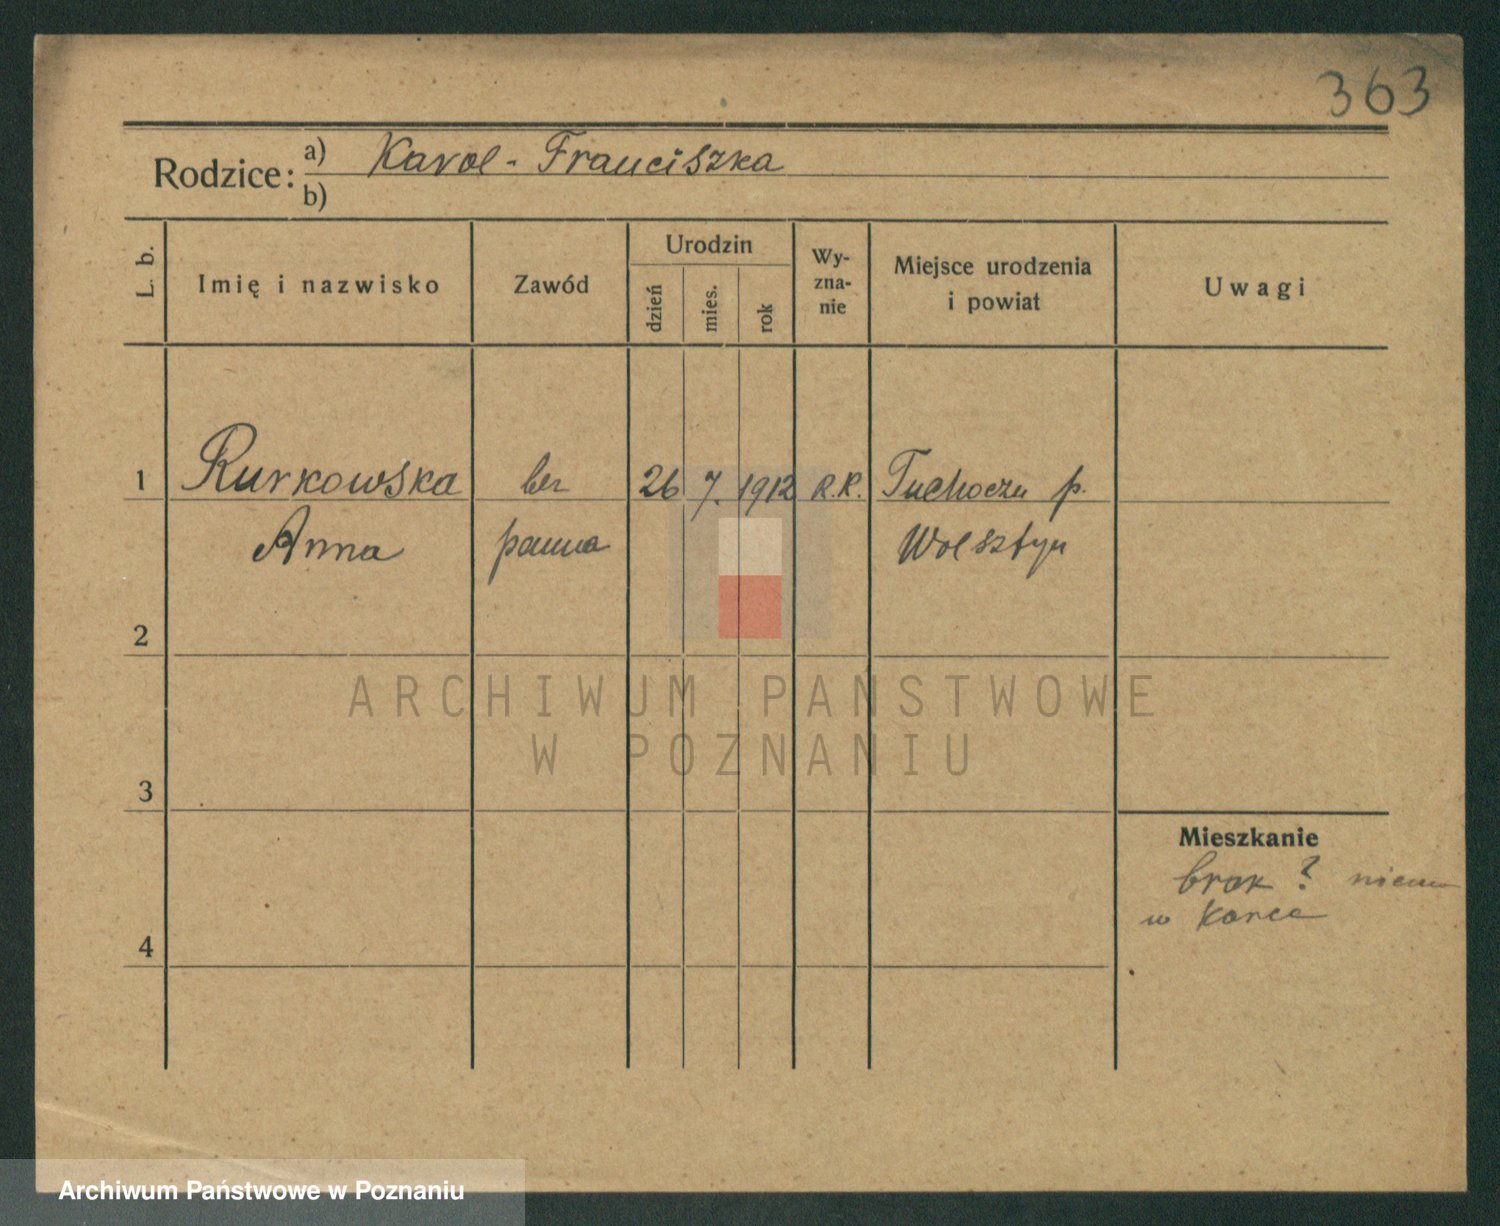 363
Rodzice: a) Karol - Franciszka
b)
L. b.
Imię i nazwisko
Zawód
Urodzin
dzień
mies.
rok
Wy-
zna-
nie
Miejsce urodzenia
i powiat
Uwagi
1 Rurkowska bez 26 7. 1912 R.K. Tuchorza p.
Anna panna Wolsztyn
2
ARCHIWUM PAŃSTWOWE
W POZNANIU
3
Mieszkanie
brak ?
w
4
Archiwum Państwowe w Poznaniu